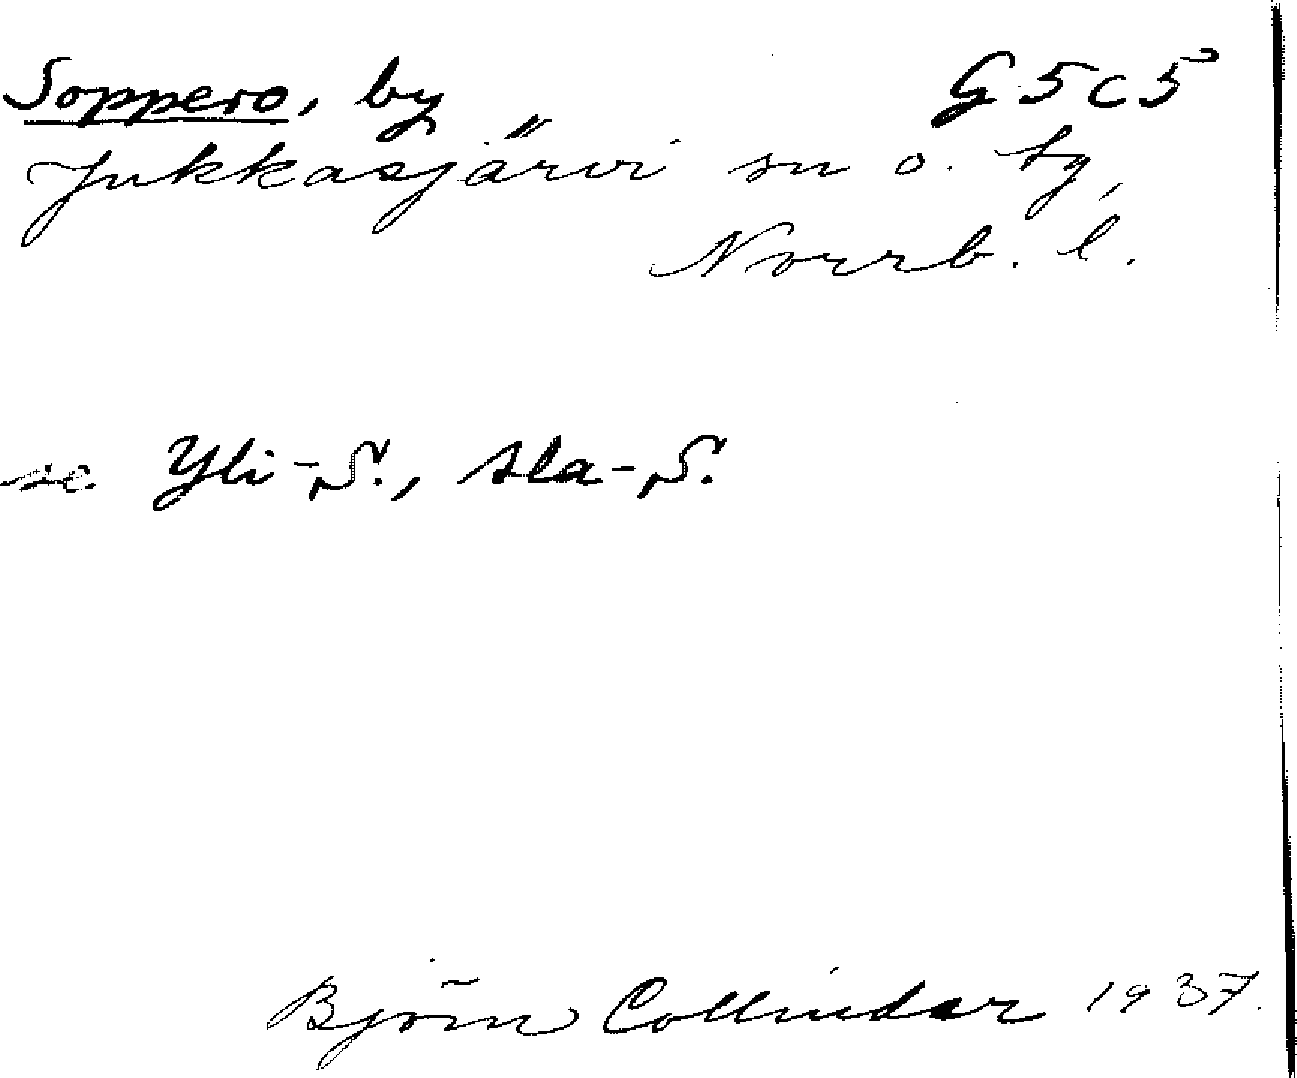 Soppero, by G5c5
Jukkasjärvi sn o. tg,
Norrb. l.
se Yli-S., Ala-S.
Björn Collinder 1937.